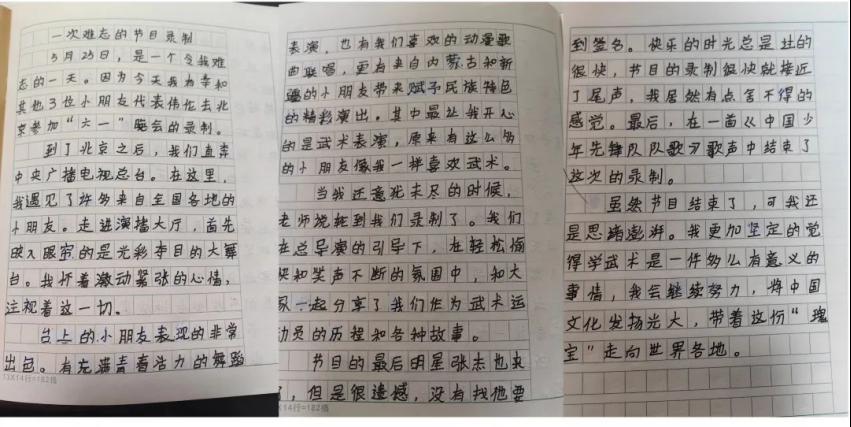 一次难忘的节目录制
5月25日，是一个令我难
忘的一天。因为今天我有幸和
其他3位小朋友代表伟佗去北
京参加“六一”晚会的录制。
到了北京之后，我们直奔
中央广播电视总台。在这里，
我遇见了许多来自全国各地的
小朋友。走进演播大厅，首先
映入眼帘的是光彩夺目的大舞
台。我怀着激动紧张的心情，
注视着这一切。
台上的小朋友表现的非常
出色。有充满青春活力的舞蹈
13X14行=182格
表演，也有我们喜欢的动漫歌
曲联唱，更有来自内蒙古和新
疆的小朋友带来赋予民族特色
的精彩演出。其中最让我开心
的是武术表演，原来有这么多
的小朋友像我一样喜欢武术。
当我还意犹未尽的时候，
老师说轮到我们录制了。我们
在总导演的引导下，在轻松愉
快和笑声不断的氛围中，和大
家一起分享了我们作为武术运
动员的历程和各种故事。
节目的最后明星张志也来
了，但是很遗憾，没有找他要
14行=182格
到签名。快乐的时光总是过的
很快，节目的录制很快就接近
了尾声，我居然有点舍不得的
感觉。最后，在一首《中国少
年先锋队队歌》歌声中结束了
这次的录制。
虽然节目结束了，可我还
是思绪澎湃。我更加坚定的觉
得学武术是一件多么有意义的
事情，我会继续努力，将中国
文化发扬光大，带着这份“瑰
宝”走向世界各地。